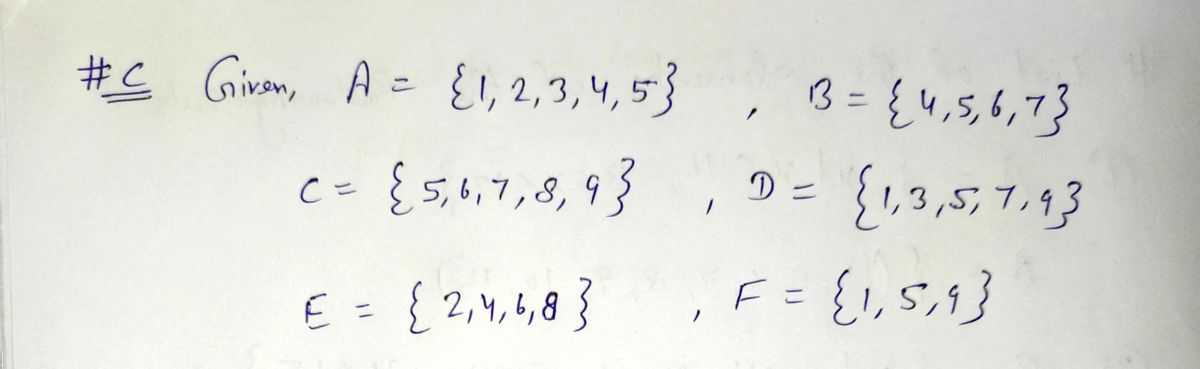 #C Given, A = {1, 2, 3, 4, 5} , B = {4, 5, 6, 7}
C = {5, 6, 7, 8, 9} , D = {1, 3, 5, 7, 9}
E = {2, 4, 6, 8} , F = {1, 5, 9}